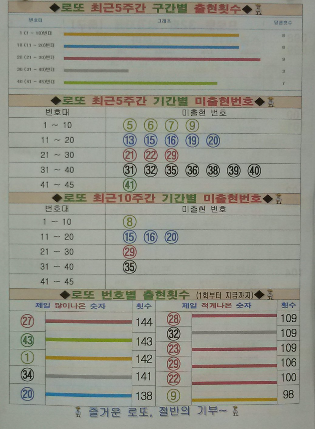 ◆로또 최근5주간 구간별 출현횟수◆
번호대 그래프 당첨횟수
1 (1 ~ 10)번대
10 (11 ~ 20)번대
20 (21 ~ 30)번대
30 (31 ~ 40)번대
◆로또 최근5주간 기간별 미출현번호◆
번호대 미출현 번호
1 ~ 10 5 6 7 9
11 ~ 20 13 15 16 19 20
21 ~ 30 21 22 29
31 ~ 40 31 32 35 36 38 39 40
41 ~ 45 41
◆로또 최근10주간 기간별 미출현번호◆
번호대 미출현 번호
1 ~ 10 8
11 ~ 20 15 16 20
21 ~ 30 29
31 ~ 40 35
41 ~ 45
◆로또 번호별 출현횟수 (1회부터 지금까지)◆
제일 많이나온 숫자 횟수 제일 적게나온 숫자 횟수
27 144 28 109
43 143 32 109
1 142 23 109
34 141 29 106
20 138 22 100
9 98
즐거운 로또, 절반의 기부~